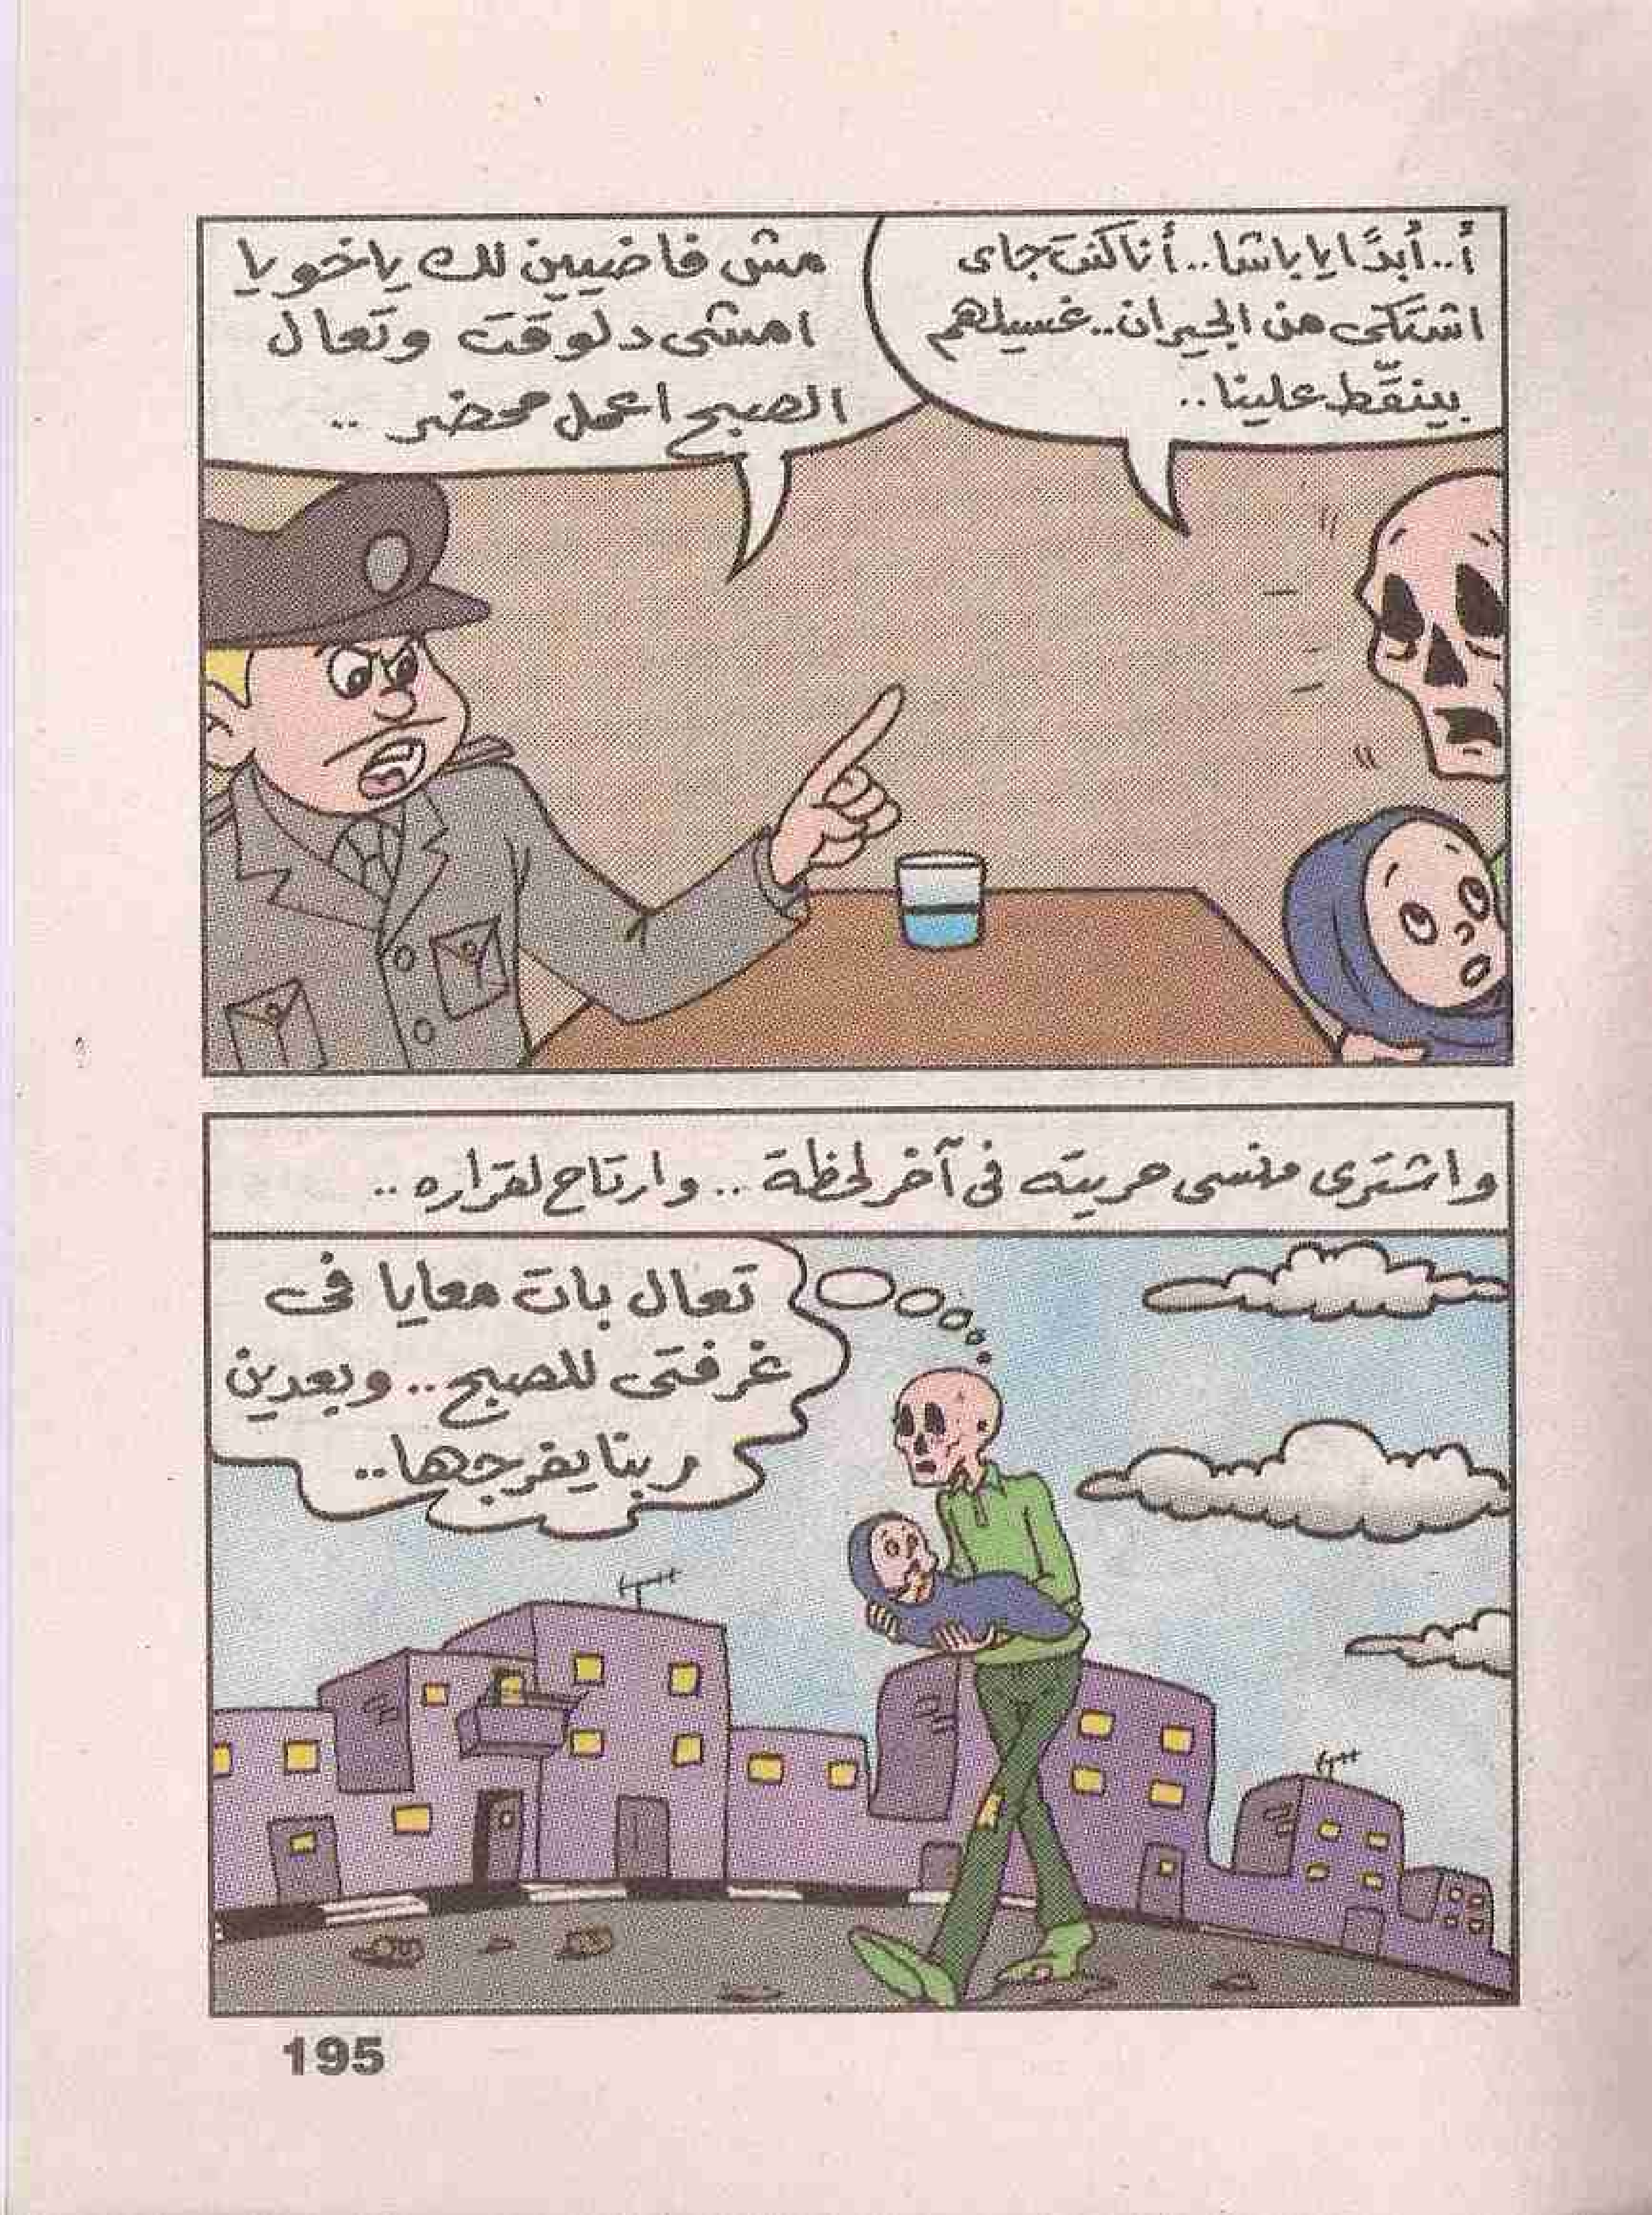 أ.. أبدًا يا باشا.. أنا كنت جاى
اشتكى من الجيران.. غسيلهم
بينقّط علينا..
مش فاضيين لك ياخويا
امشى دلوقت وتعال
الصبح اعمل محضر..
واشترى منسى حريته فى آخر لحظة.. وارتاح لقراره..
تعال بات معايا فى
غرفتى للصبح.. وبعدين
ربنا يفرجها..
195